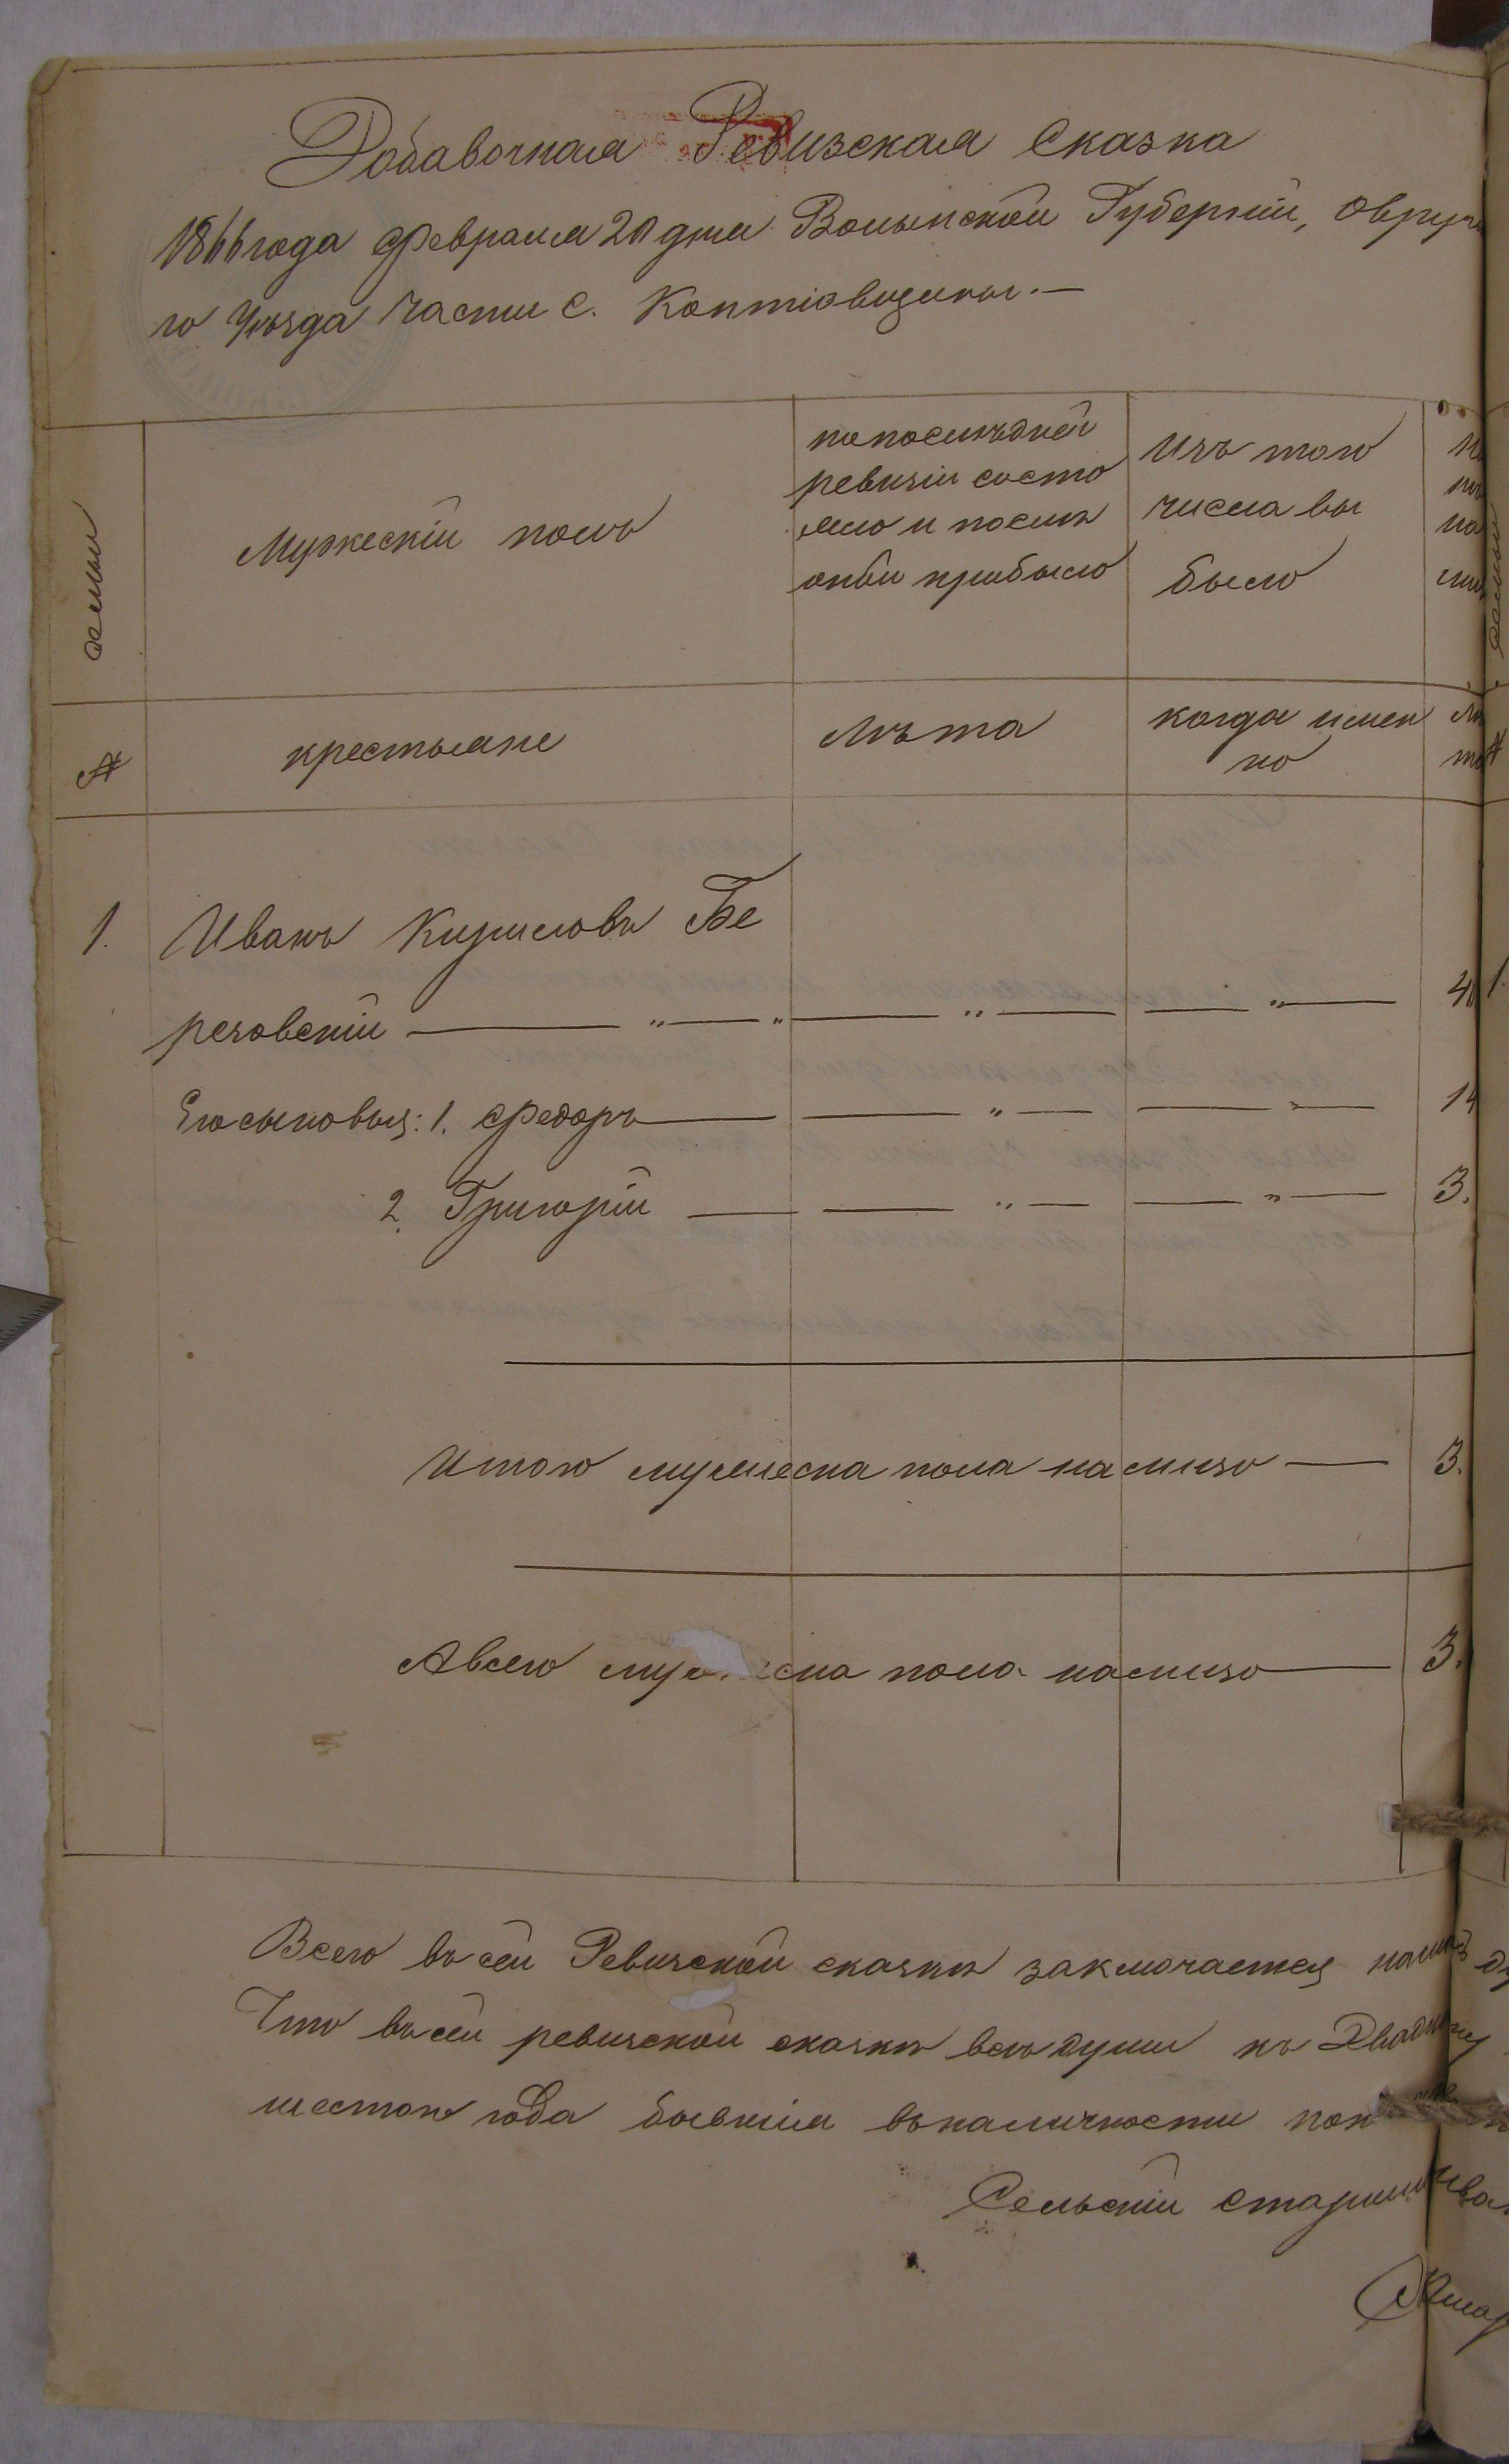 Добавочная Ревизская Сказка
1866 года Февраля 20 дня Волынской Губернiи, Овруч
го Уѣзда части с. Коптiовщины.—
семьи
Мужескiй полъ
по послѣдней
ревизiи состо
яло и послѣ
онои прибыло
Изъ того
числа вы
было
№
крестьяне
Лѣта
когда имен
но
1. Иванъ Кириловъ Бе
резовскiй — „ — „ — „ — — „ — 40
Его сыновья: 1. Федоръ — — „ — — „ — 14
2. Григорiй — — „ — — „ — 3.
Итого мужеска пола на лицо — 3.
А всего муж еска пола на лицо — 3.
Всего въ сей Ревизской сказкѣ заключается
Что въ сей ревизской сказкѣ всѣ души къ
шестого года бывшiя въ наличности пок
Сельскiй Старшина